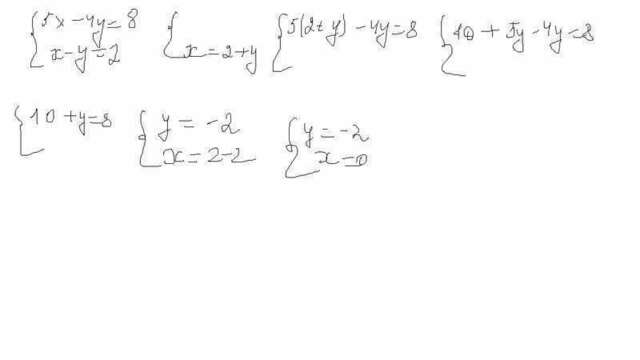 5x-4y=8
x-y=2
x=2+y
5(2+y)-4y=8
10+5y-4y=8
10+y=8
y=-2
x=2-2
y=-2
x=0